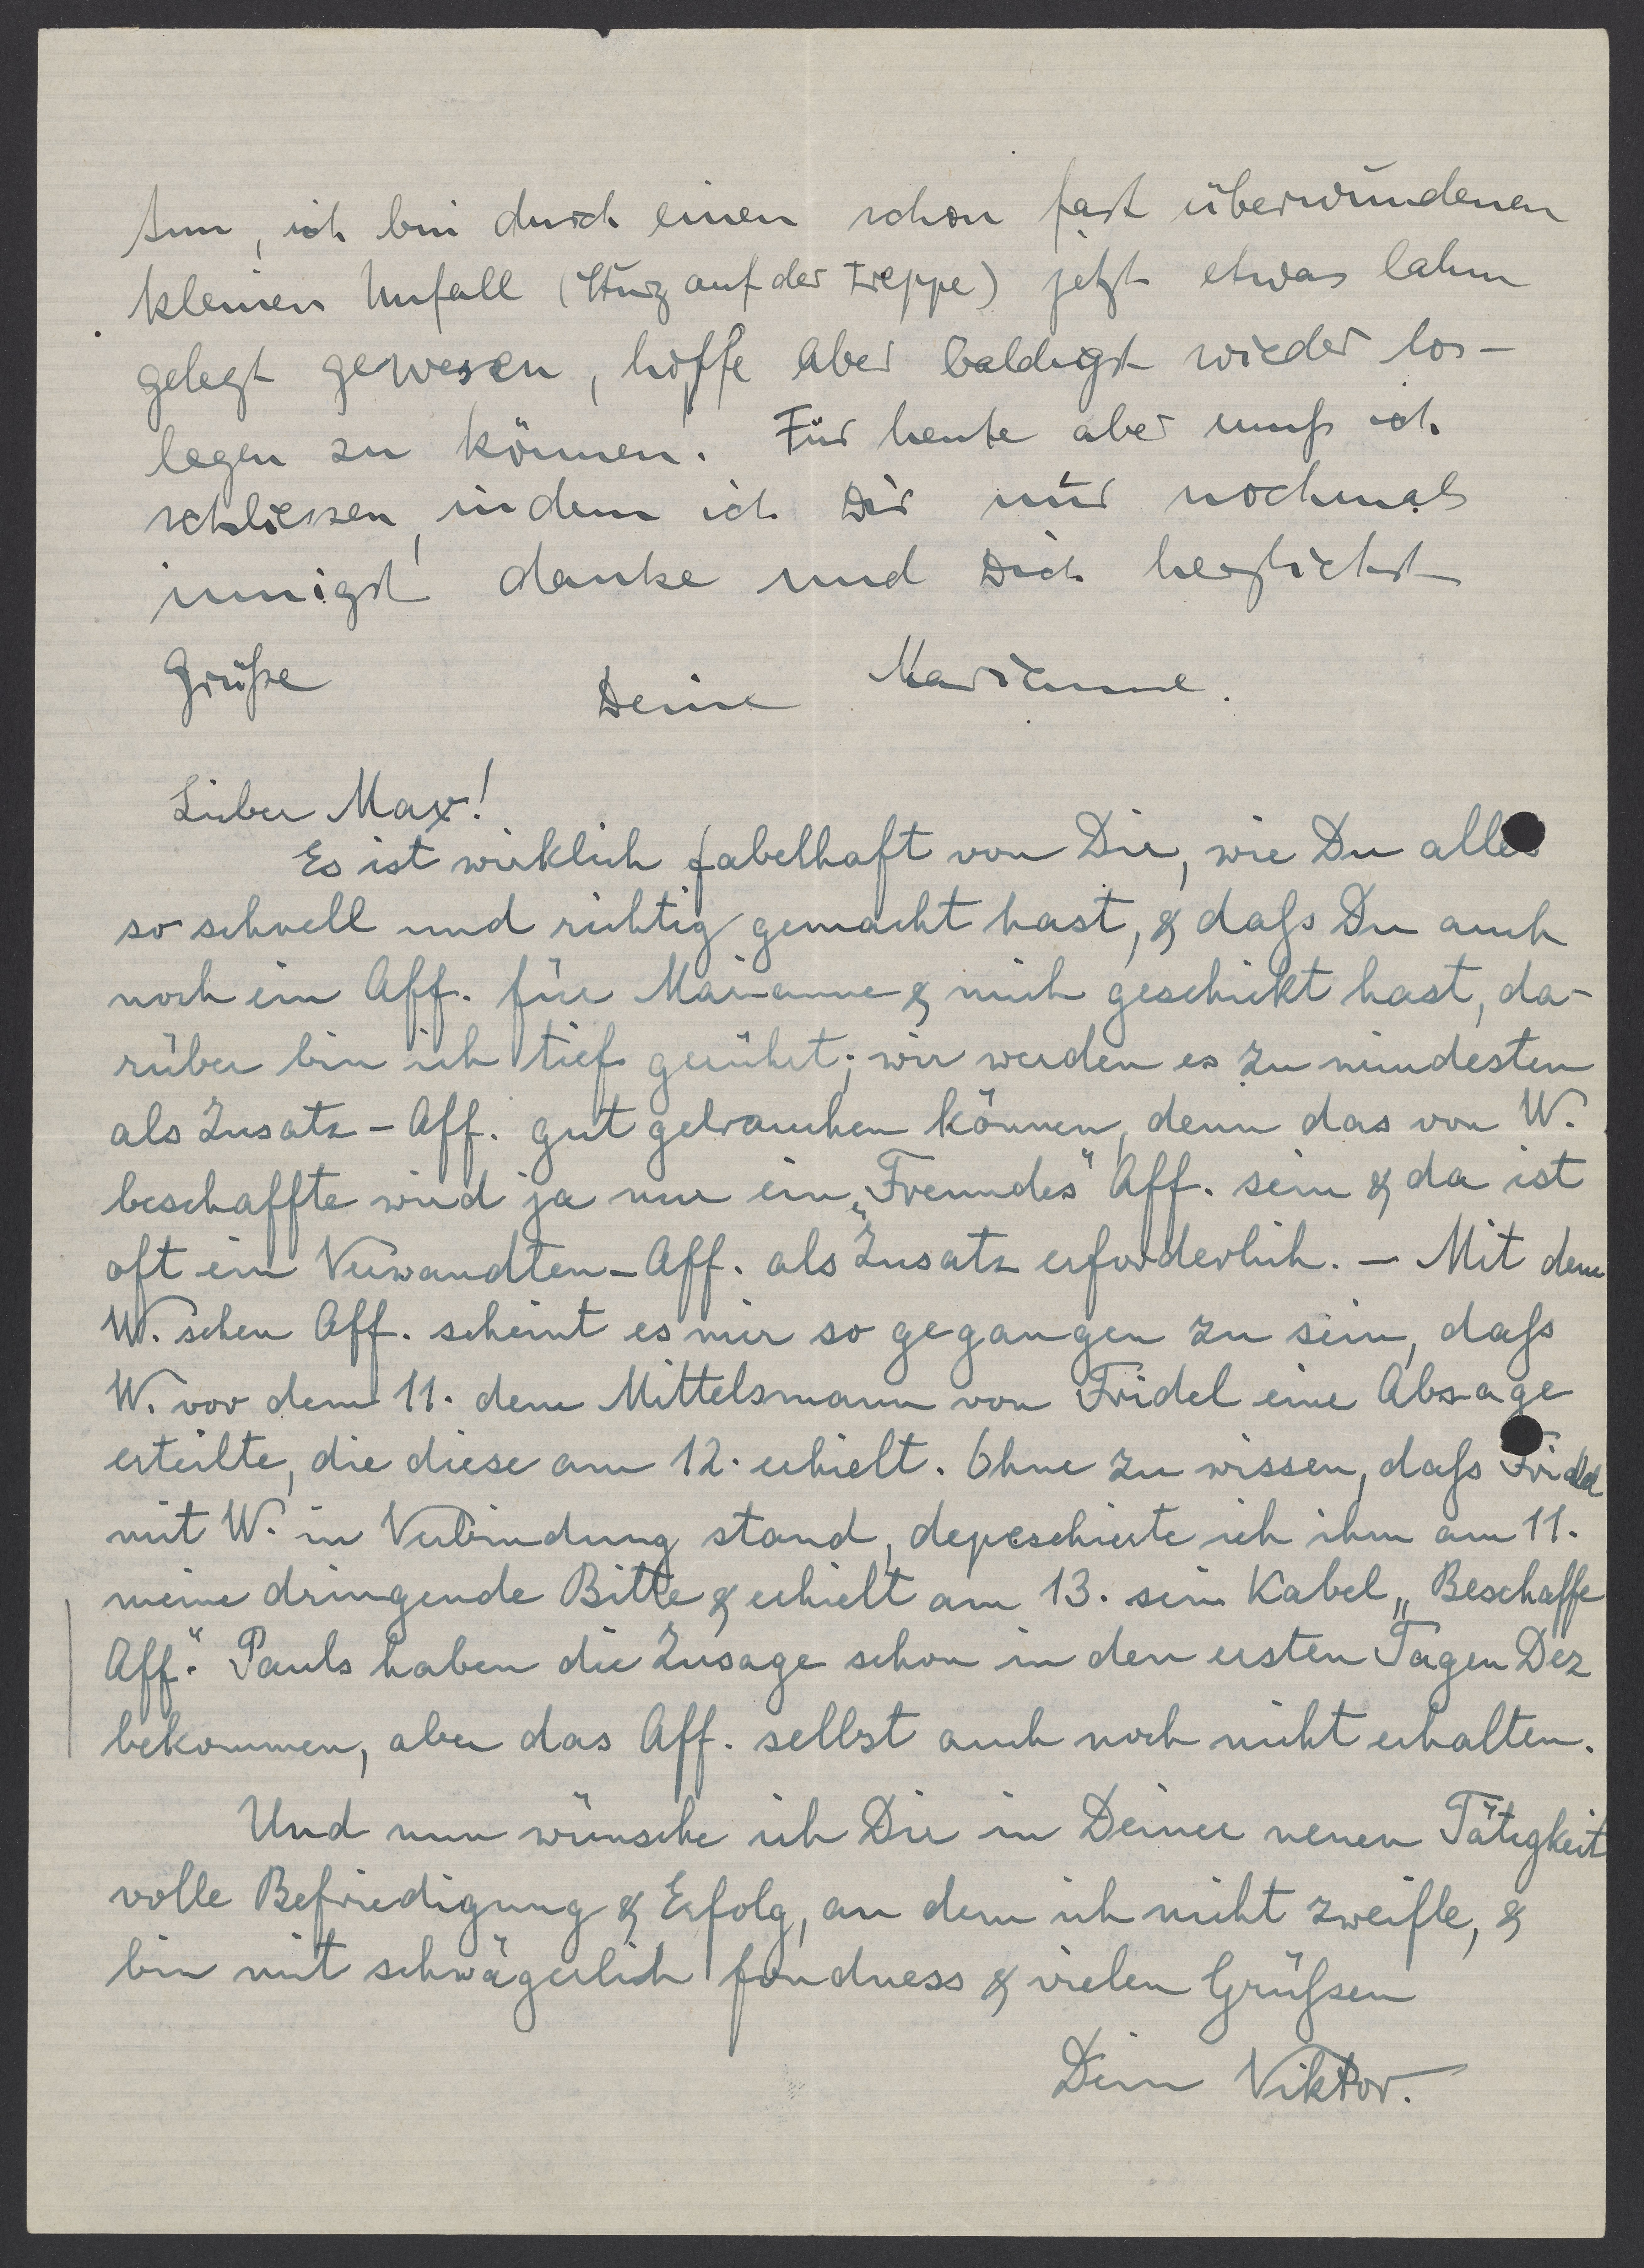 tun, ich bin durch einen schon fast überwundenen
kleinen Unfall (Sturz auf der Treppe) jetzt etwas lahm
gelegt gewesen, hoffe aber baldigst wieder los-
legen zu können. Für heute aber muß ich
schliessen, indem ich Dir nur nochmals
innigst danke und Dich herzlichst
Grüße
Deine Marianne.
Lieber Max!
Es ist wirklich fabelhaft von Dir, wie Du alles
so schnell und richtig gemacht hast, & daß Du auch
noch ein Aff. für Marianne & mich geschickt hast, da-
rüber bin ich tief gerührt; wir werden es zu mindesten
als Zusatz-Aff. gut gebrauchen können, denn das von W.
beschaffte wird ja nur ein „Freundes" Aff. sein & da ist
oft ein Verwandten-Aff. als Zusatz erforderlich. – Mit dem
W. schen Aff. scheint es mir so gegangen zu sein, daß
W. vor dem 11. dem Mittelsmann von Fridel eine Absage
erteilte, die diese am 12. erhielt. Ohne zu wissen, daß Fridel
mit W. in Verbindung stand, depeschierte ich ihm am 11.
meine dringende Bitte & erhielt am 13. sein Kabel „Beschaffe
Aff." Pauls haben die Zusage schon in den ersten Tagen Dez
bekommen, aber das Aff. selbst auch noch nicht erhalten.
Und nun wünsche ich Dir in Deiner neuen Tätigkeit
volle Befriedigung & Erfolg, an dem ich nicht zweifle, &
bin mit schwägerlich fondness & vielen Grüßen
Dein Viktor.